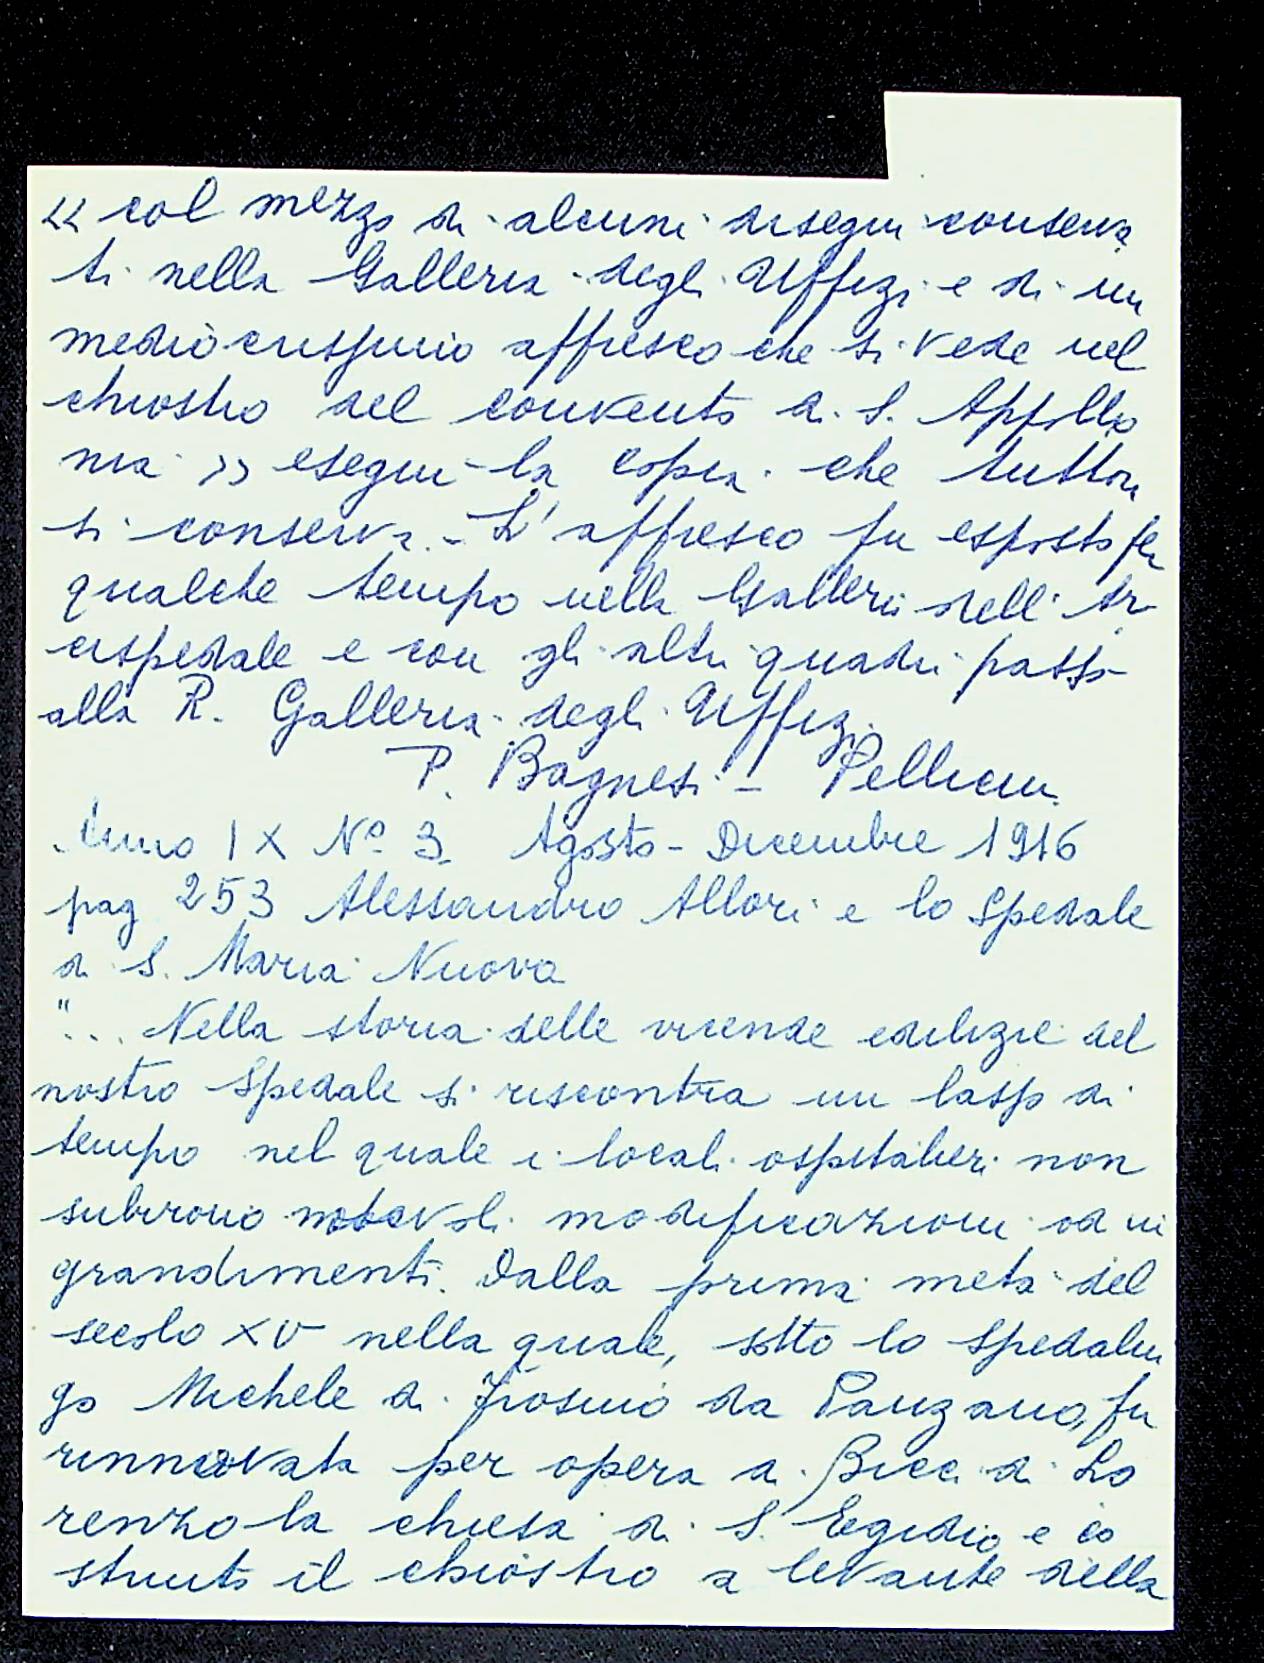 << col mezzo di alcuni disegni conserva
ti nella Galleria degli Uffizi e di un
mediocrissimo affresco che si vede nel
chiostro del convento di S. Appollo
nia >> eseguì la copia che tuttora
si conserva. - L'affresco fu esposto per
qualche tempo nella Galleria dell'Ar
cispedale e con gli altri quadri passò
alla R. Galleria degli Uffizi.
P. Bagnesi - Bellicini
Anno IX Nº 3 Agosto - Dicembre 1916
pag 253 Alessandro Allori e lo Spedale
di S. Maria Nuova
"... Nella storia delle vicende edilizie del
nostro Spedale si riscontra un lasso di
tempo nel quale i locali ospitalieri non
subirono notevoli modificazioni od in
grandimenti. Dalla prima metà del
secolo XV nella quale, sotto lo Spedalin
go Michele di Frosino da Panzano, fu
rinnovata per opera di Bicci di Lo
renzo la chiesa di S. Egidio e co
struito il chiostro a levante della